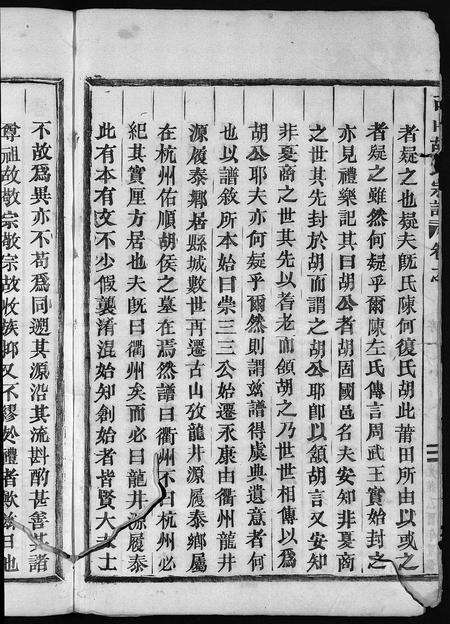 者疑之也疑夫旣氏陳何復氏胡此莆田所由以或之
者疑之雖然何疑乎爾陳左氏傳言周武王實始封之
亦見禮樂記其曰胡公者胡固國邑名夫安知非夏商
之世其先封於胡而謂之胡公耶卽以頷胡言又安知
非夏商之世其先以耆老而頷胡之乃世世相傳以爲
胡公耶夫亦何疑乎爾然則謂茲譜得虞典遺意者何
也以譜敘所本始曰崇三三公始遷永康由衢州龍井
源履泰鄉居縣城數世再遷古山攷龍井源履泰鄉屬
在杭州佑順胡侯之墓在焉然譜曰衢州不曰杭州必
紀其實厘方居也夫旣曰衢州矣而必曰龍井源履泰
此有本有文不少假襲淆混始知創始者皆賢大夫士
不故爲異亦不苟爲同遡其源沿其流斟酌甚善其諸
尊祖故敬宗敬宗故收族抑又不繆於禮者歟茲曰也